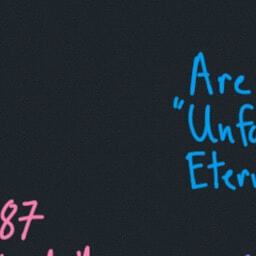 Are
"Unfo
Eter
87